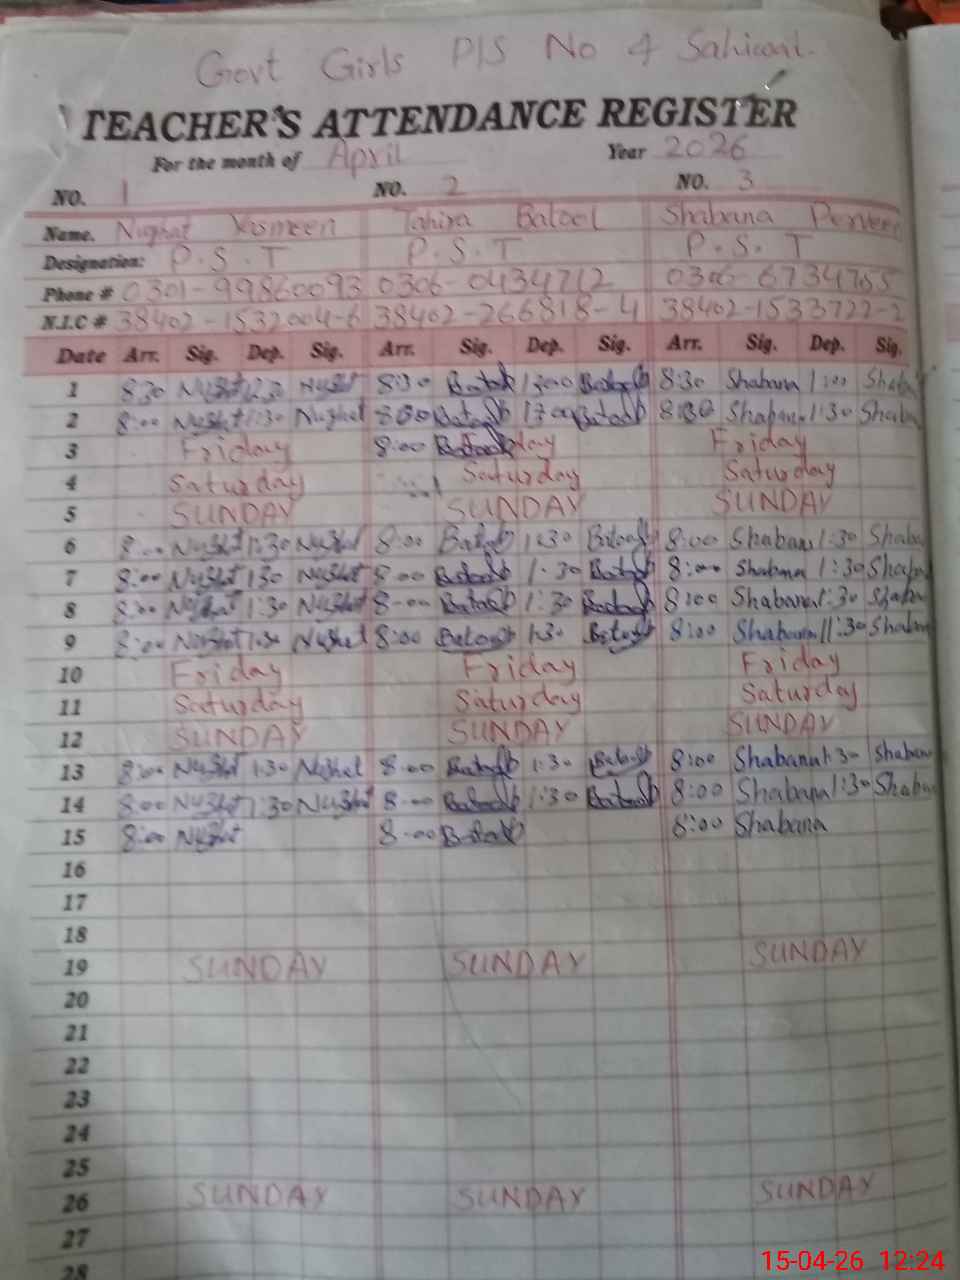 Govt Girls P/S No 4 Sahiwal.
TEACHER'S ATTENDANCE REGISTER
For the month of April Year 2026
NO. 1 NO. 2 NO. 3
Name. Nughat Yasmeen Tahira Batool Shabana Perveen
Designation: P.S.T P.S.T P.S.T
Phone # 0301-99860093 0306-0434712 0306-6734755
N.I.C # 38402-1532004-6 38402-266818-4 38402-1533722-2
Date Arr. Sig. Dep. Sig. Arr. Sig. Dep. Sig. Arr. Sig. Dep. Sig.
1 8:30 8:30 Batool 1:00 Batool 8:30 Shabana 1:00 Shaba
2 8:00 1:30 Batool Batool 8:30 Shabana 1:30 Shaba
3 Friday 8:00 Friday
4 Saturday Saturday Saturday
5 SUNDAY SUNDAY SUNDAY
6 8:00 1:30 8:00 Batool 1:30 Batool 8:00 Shaban 1:30 Shaba
7 8:00 130 8:00 Batool 1:30 Batool 8:00 Shabana 1:30 Shaba
8 8:00 1:30 8:00 Batool 1:30 Batool 8:00 Shabana 1:30 Shaba
9 8:00 1:30 8:00 Batool 1:30 Batool 8:00 Shabana 1:30 Shaban
10 Friday Friday Friday
11 Saturday Saturday Saturday
12 SUNDAY SUNDAY SUNDAY
13 8:00 1:30 8:00 Batool 1:30 Batool 8:00 Shabana 1:30 Shaban
14 8:00 1:30 8:00 Batool 1:30 Batool 8:00 Shabana 1:30 Shaba
15 8:00 8:00 Batool 8:00 Shabana
16
17
18
19 SUNDAY SUNDAY SUNDAY
20
21
22
23
24
25
26 SUNDAY SUNDAY SUNDAY
27
28
15-04-26 12:24